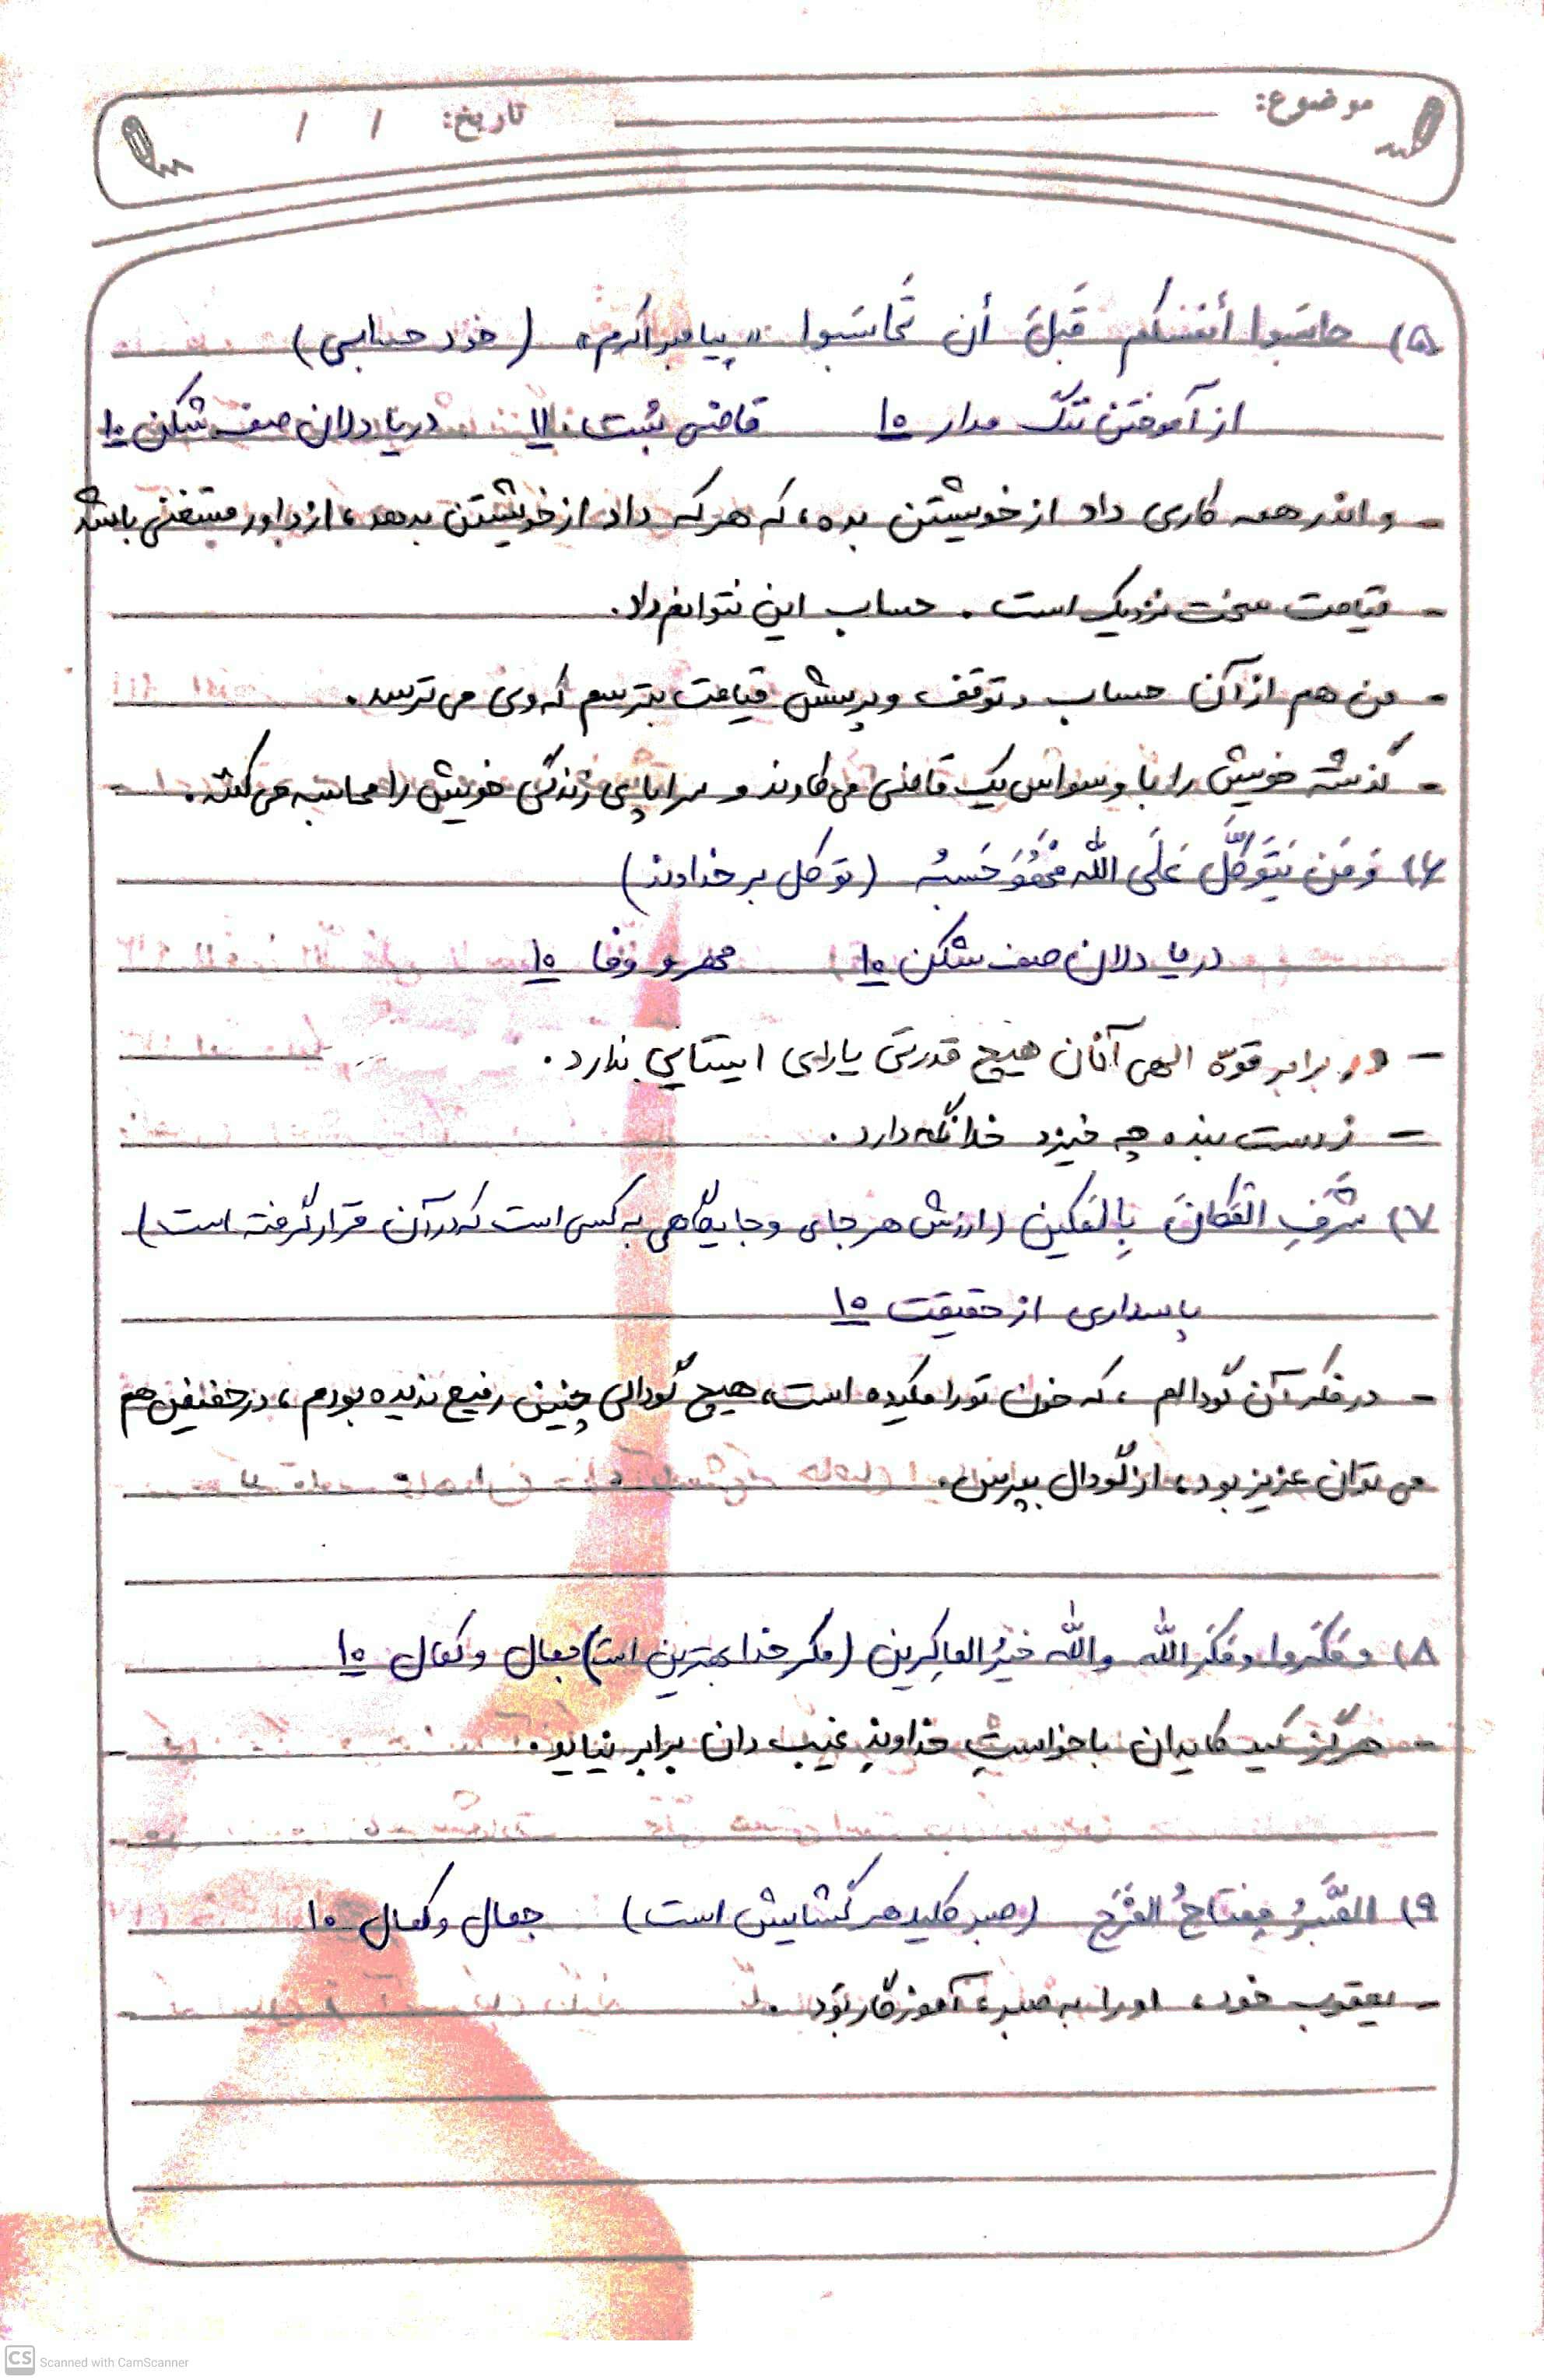 موضوع: تاریخ: / /
۵) حاسَبوا أنفسکم قَبلَ أن تُحاسَبوا «پیامبر اکرم» (خود حسابی)
از آموختن ننگ مدار ۱۰ قاضی بُست ۱۱ دریا دلان صف شکن ۱۰
- و اندر همه کاری داد از خویشتن بده، که هر که داد از خویشتن بدهد، از داور مستغنی باشد
- قیامت سخت نزدیک است. حساب این نتوانم داد.
- من هم از آن حساب و توقف و پرسش قیامت بترسم که وی می ترسد.
- گذشته خویش را با وسواس یک قاضی می کاوند و سراپای زندگی خویش را محاسبه می کنند.
۶) وَ مَن یَتَوَکَّل عَلَی اللّٰه فَهُوَ حَسبُه (توکل بر خداوند)
دریا دلان صف شکن ۱۰ مهر و وفا ۱۰
- در برابر قوّه الهی آنان هیچ قدرتی یارای ایستایی ندارد.
- ز دست بنده چه خیزد خدا نگه دارد.
۷) شَرَفِ المَکانَ بِالمَکین (ارزش هر جای و جایگاهی به کسی است که در آن قرار گرفته است)
پاسداری از حقیقت ۱۰
- در فکر آن گودالم، که خون تو را مکیده است، هیچ گودالی چنین رفیع ندیده بودم، در حضیض هم
می توان عزیز بود، از گودال بپرس.
۸) و مَکَروا و مَکَرَ اللّٰه واللّٰه خَیرُ الماکِرین (مکر خدا بهترین است) جمال و کمال ۱۰
- هرگز کید کایدان با خواستِ خداوندِ غیب دان برابر نیاید.
۹) الصَّبرُ مِفتاحُ الفَرَج (صبر کلید هر گشایش است) جمال و کمال ۱۰
- یعقوب خود، او را به صبر، آموزگار بُوَد.
CS Scanned with CamScanner